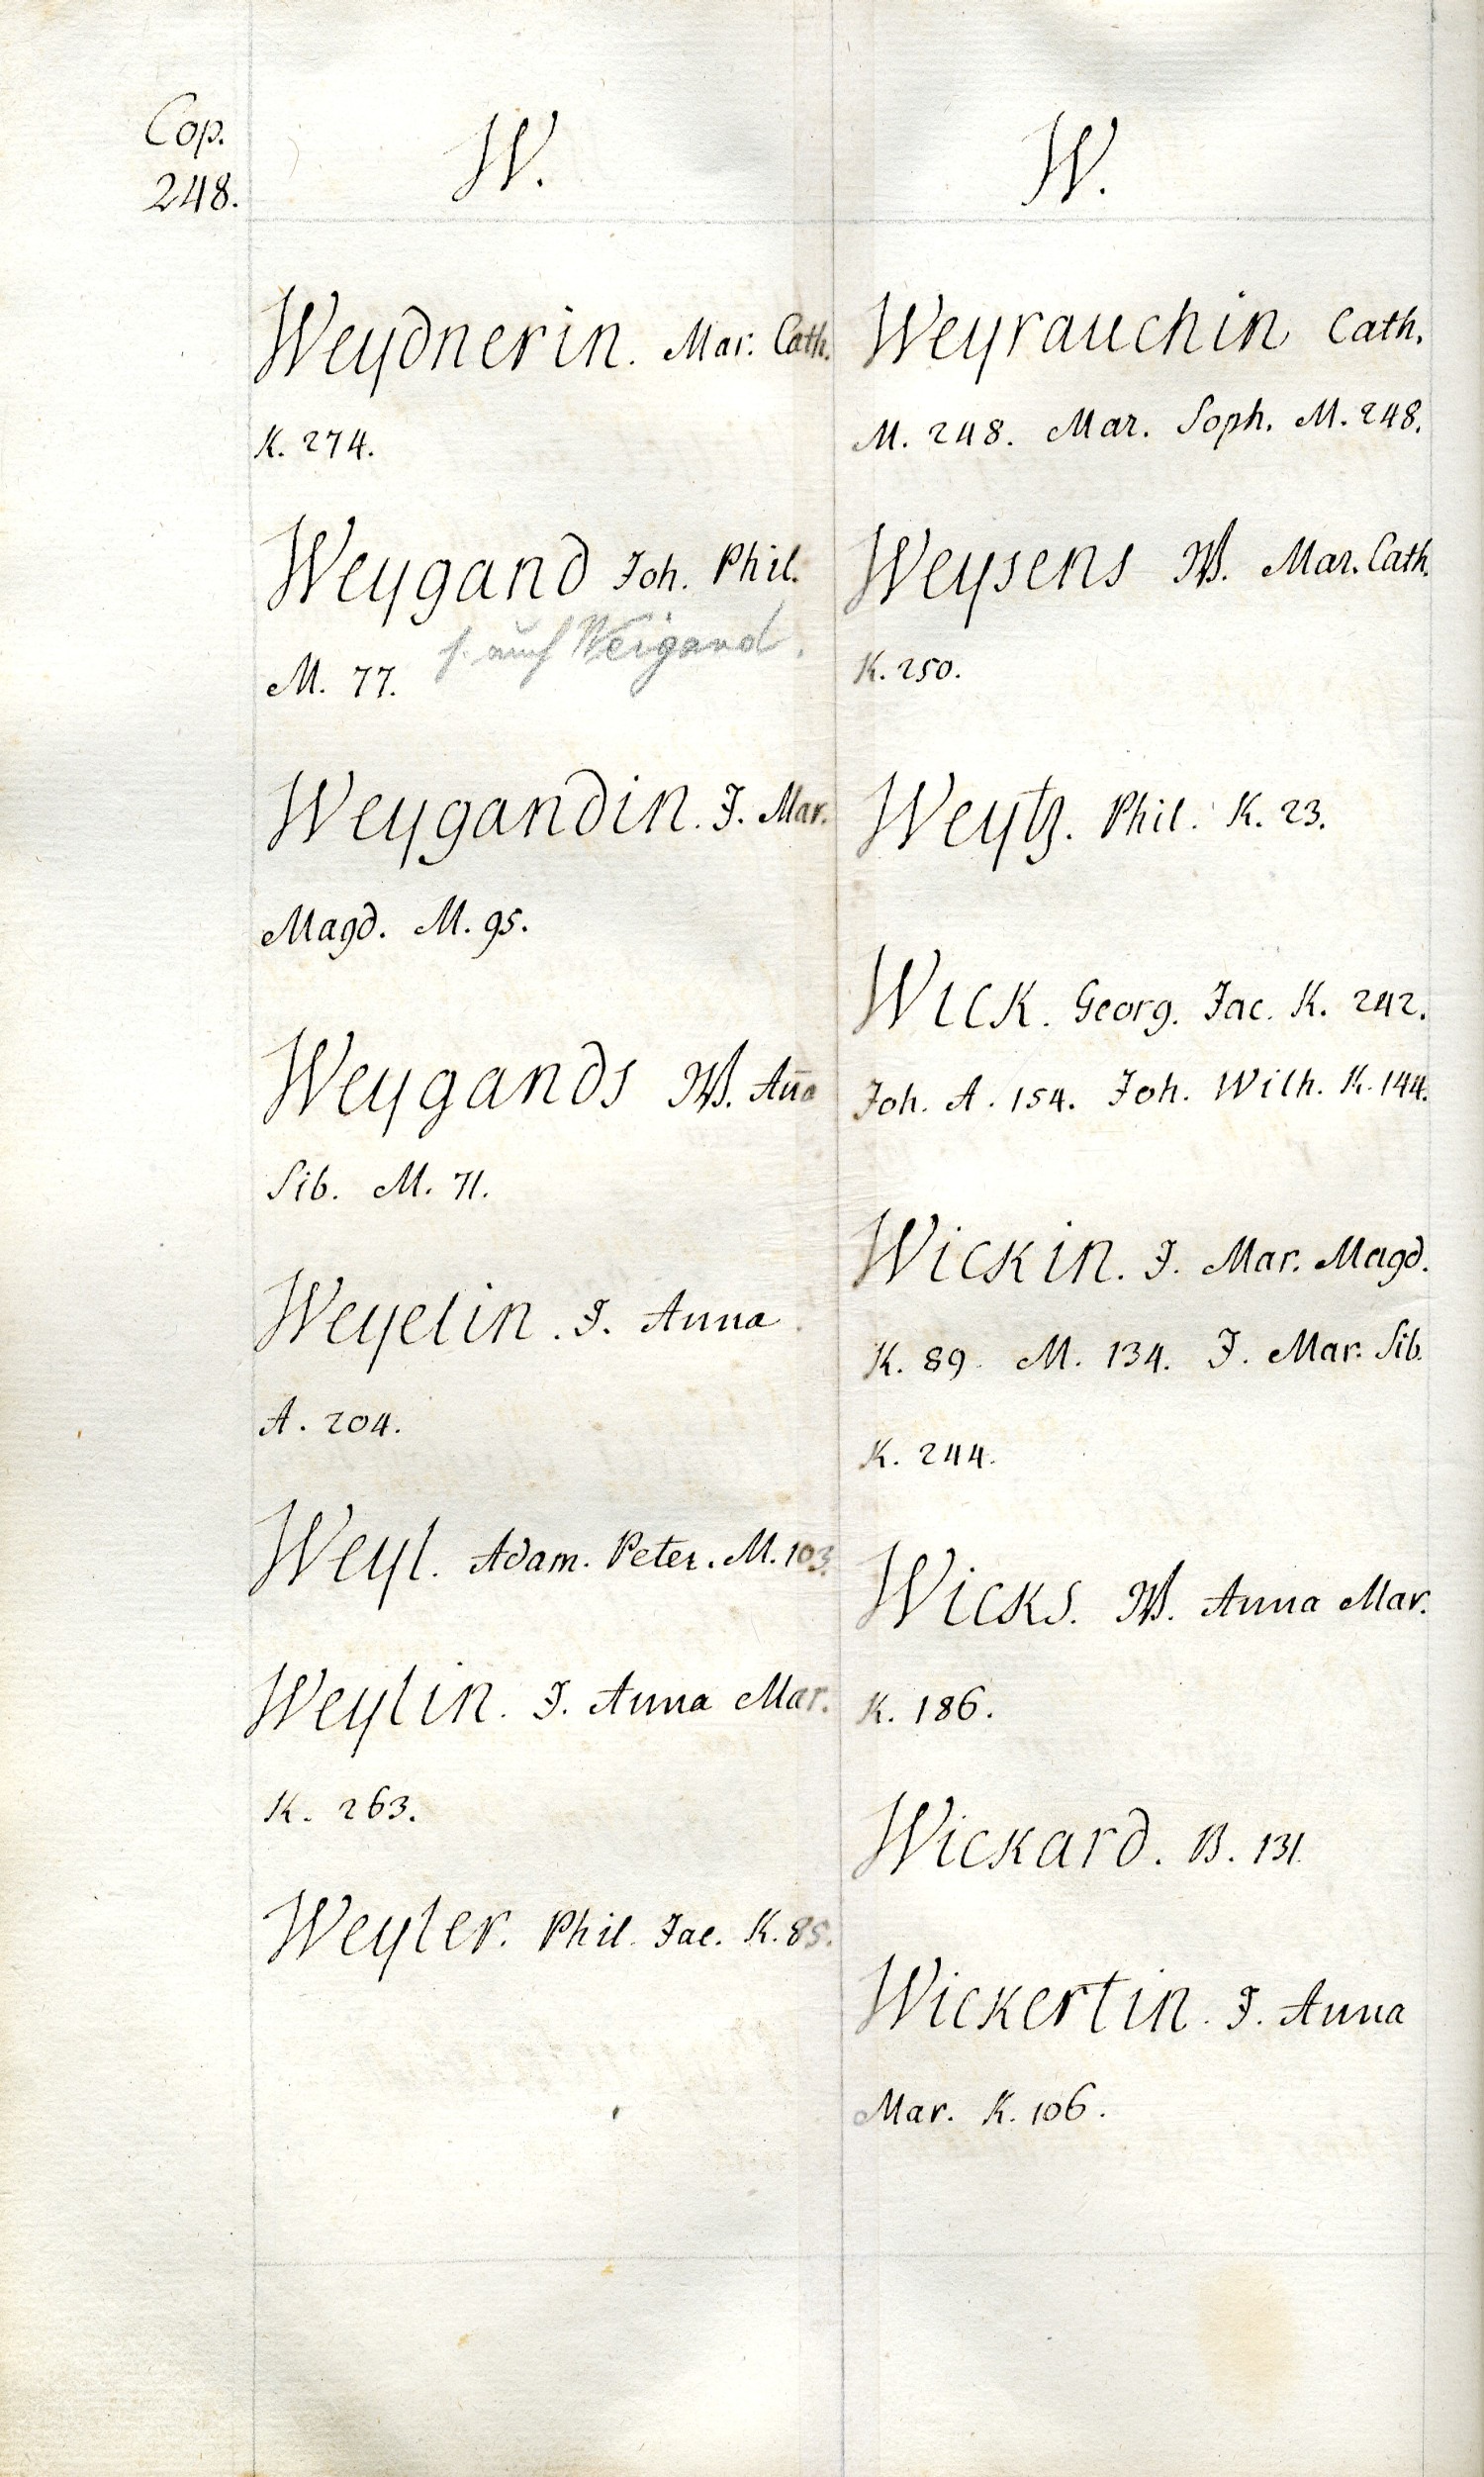 Cop.
248.
W.
Weydnerin. Mar. Cath.
K. 274.
Weygand Joh. Phil.
s. auch Weigand.
M. 77.
Weygandin. J. Mar.
Magd. M. 95.
Weygands W. Aña
Sib. M. 71.
Weyelin. J. Anna
A. 204.
Weyl. Adam. Peter. M. 103.
Weylin. J. Anna Mar.
K. 263.
Weyler. Phil. Jac. K. 85.
W.
Weyrauchin Cath.
M. 248. Mar. Soph. M. 248.
Weysens W. Mar. Cath.
K. 250.
Weytz. Phil. K. 23.
Wick. Georg. Jac. K. 242.
Joh. A. 154. Joh. Wilh. K. 144.
Wickin. J. Mar. Magd.
K. 89. M. 134. J. Mar. Sib.
K. 244.
Wicks. W. Anna Mar.
K. 186.
Wickard. B. 131.
Wickertin. J. Anna
Mar. K. 106.